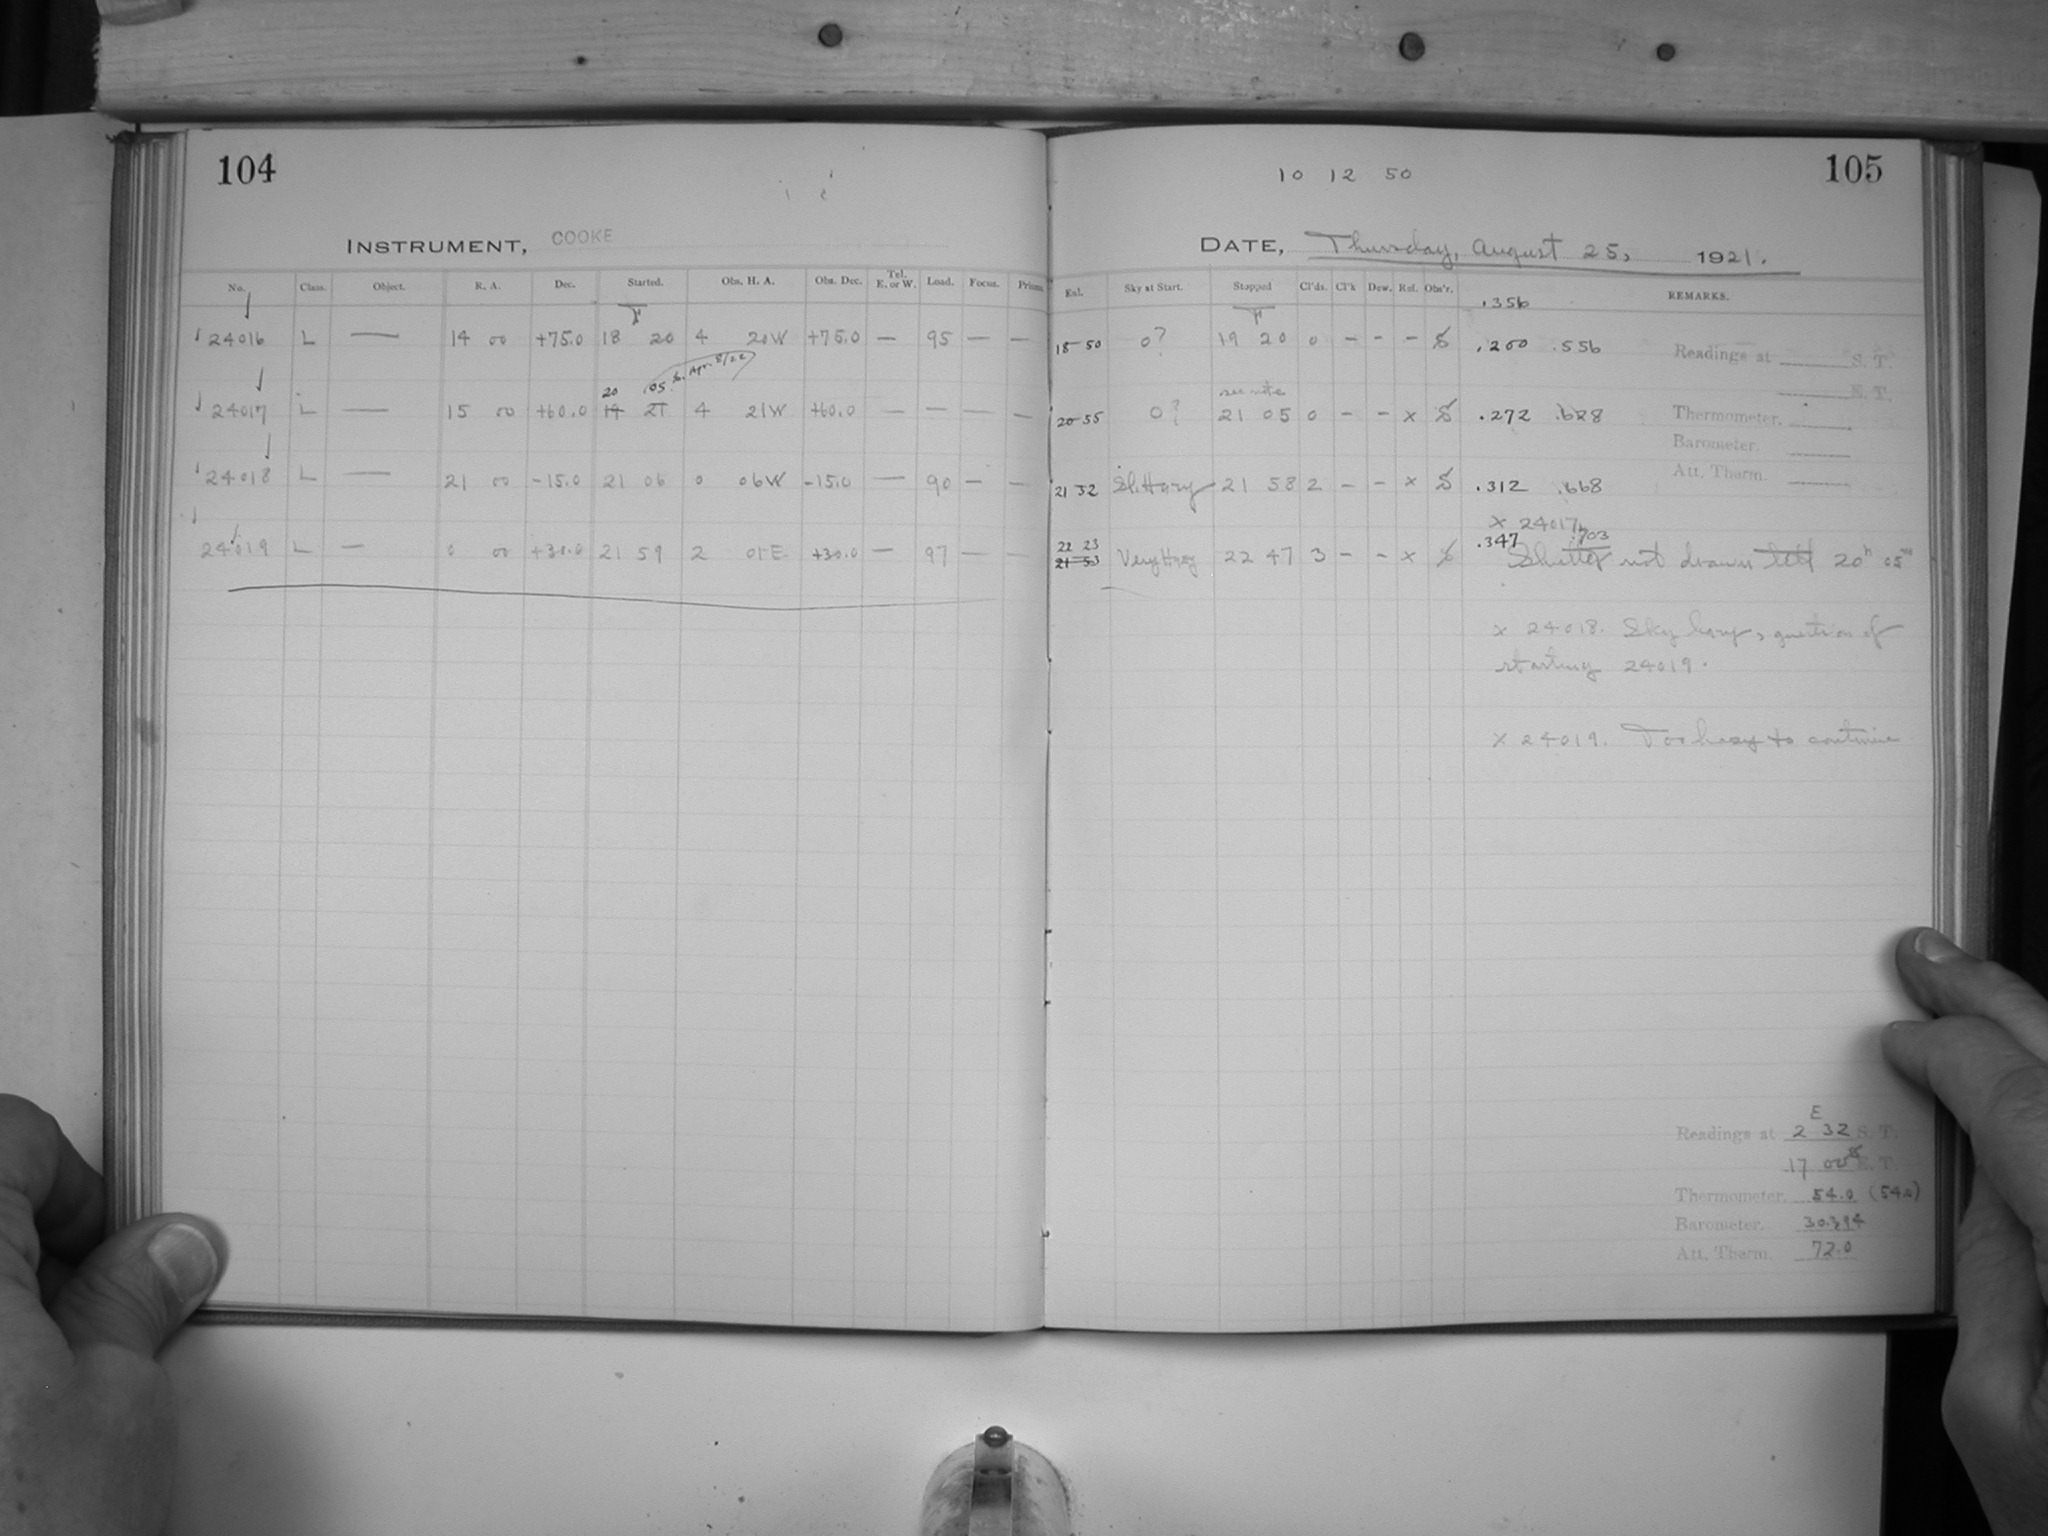 104
INSTRUMENT, COOKE
No. Class. Object. R. A. Dec. Started. Obs. H. A. Obs. Dec. Tel. E. or W. Load. Focus. Prisms.
24016 L — 14 00 +75.0 18 20 4 20W +75.0 — 95 — —
20 05 Apr. 5/22
24017 L — 15 00 +60.0 19 21 4 21W +60.0 — — — —
24018 L — 21 00 -15.0 21 06 0 06W -15.0 — 90 — —
24019 L — 0 00 +30.0 21 59 2 01E +30.0 — 97 — —
10 12 50
105
DATE, Thursday, August 25, 1921.
Ext. Sky at Start. Stopped Cl'ds. Cl'k Dew. Ref. Obs'r. REMARKS.
.356
18 50 0? 19 20 0 - - - .200 .556
Readings at S. T.
E. T.
see note
20 55 0? 21 05 0 - - x .272 .628
Thermometer.
Barometer.
Att. Therm.
21 32 Sl. Hazy 21 58 2 - - x .312 .668
x 24017
22 23
21 53 Very Hazy 22 47 3 - - x .347 .703
Shutter not drawn till 20h 05m
x 24018. Sky hazy, question of
starting 24019.
x 24019. Too hazy to continue
E
Readings at 2 32 S. T.
17 00 E. T.
Thermometer. 54.0 (54.0)
Barometer. 30.394
Att. Therm. 72.0